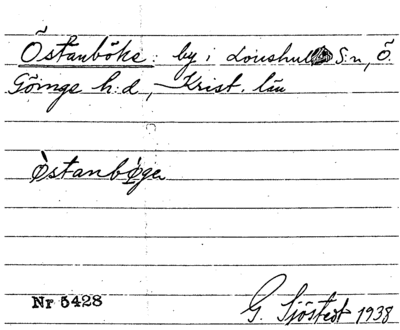 Östanböke: by i Loushult S:n, Ö.
Göinge h:d, Krist. län
östanböga
Nr 5428
G. Sjöstedt 1938